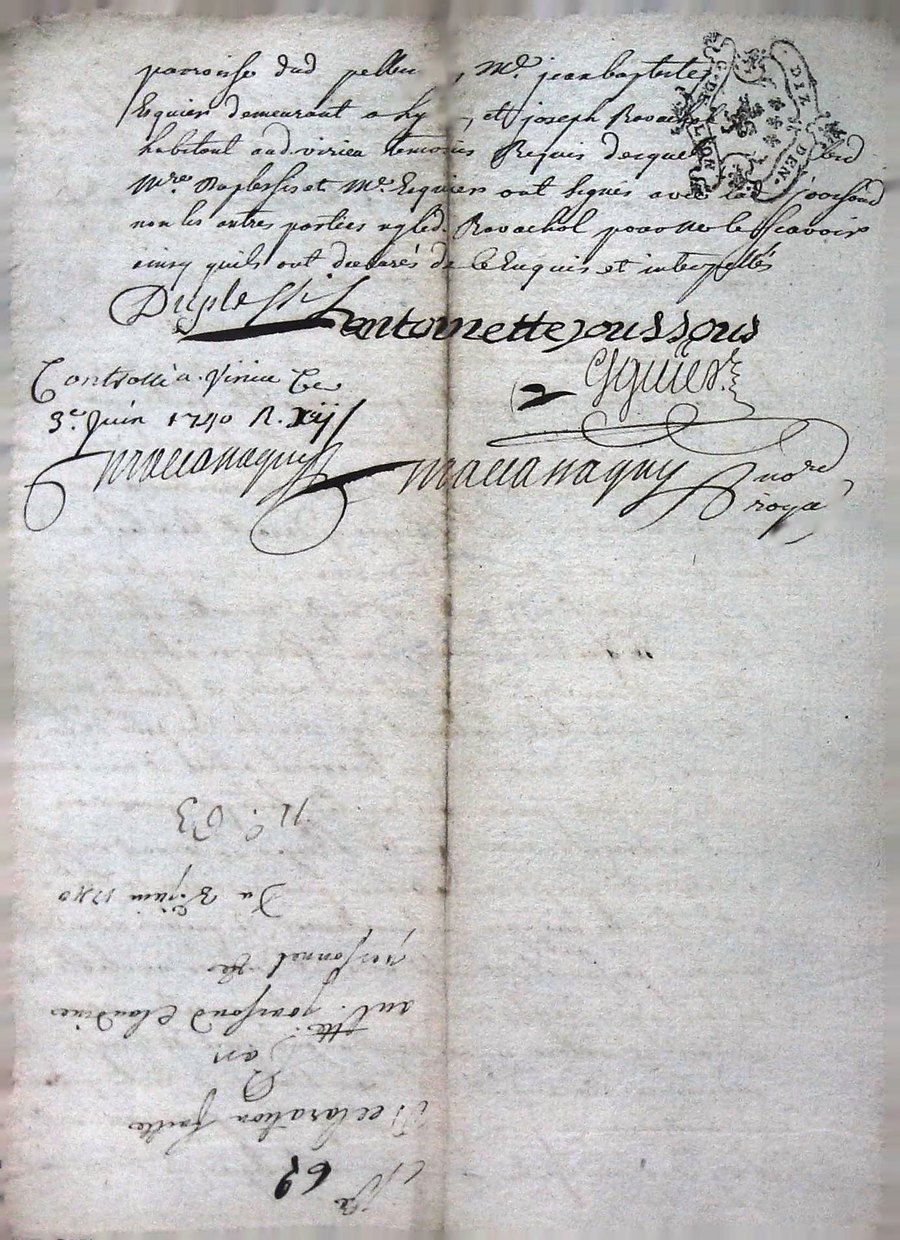 parroisse dud pellu , Me. jean baptiste
Esquier demeurant a , et joseph Ravachol
habitant aud virieu temoins Requis desquels led
Mre. Duplessis et Me. Esquier ont signés avec lad
non les autres parties ny led. Ravachol pour ne le scavoir
ainsy quils ont declarés de ce Enquis et interpellés
Duplessis antoinette joussous
Esquier
Controllé a virieu Ce
3e. Juin 1740 R. xij s
maccanaguy maccanaguy nore
roya
G. DE LYON
DIZ DEN.
Cote 69
Declaration faitte
par
ant.tte Claudine
personnel
Du 3e juin 1740
n.° 63